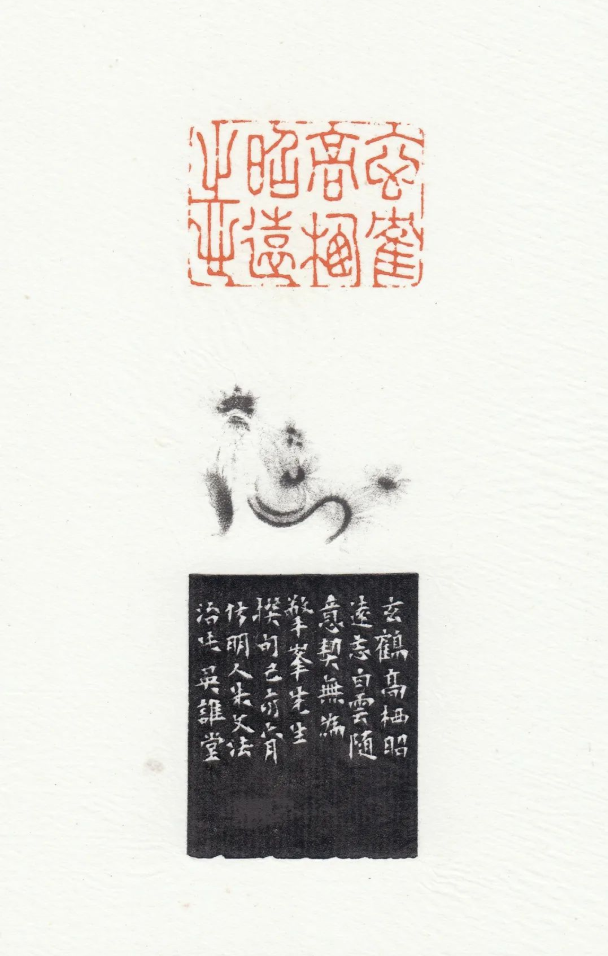 玄隺
高栖
昭遠
志
玄鶴高栖昭
遠志白雲隨
意契無為
峯先生
撰句己亥六月
仿明人朱文法
治 英誰堂